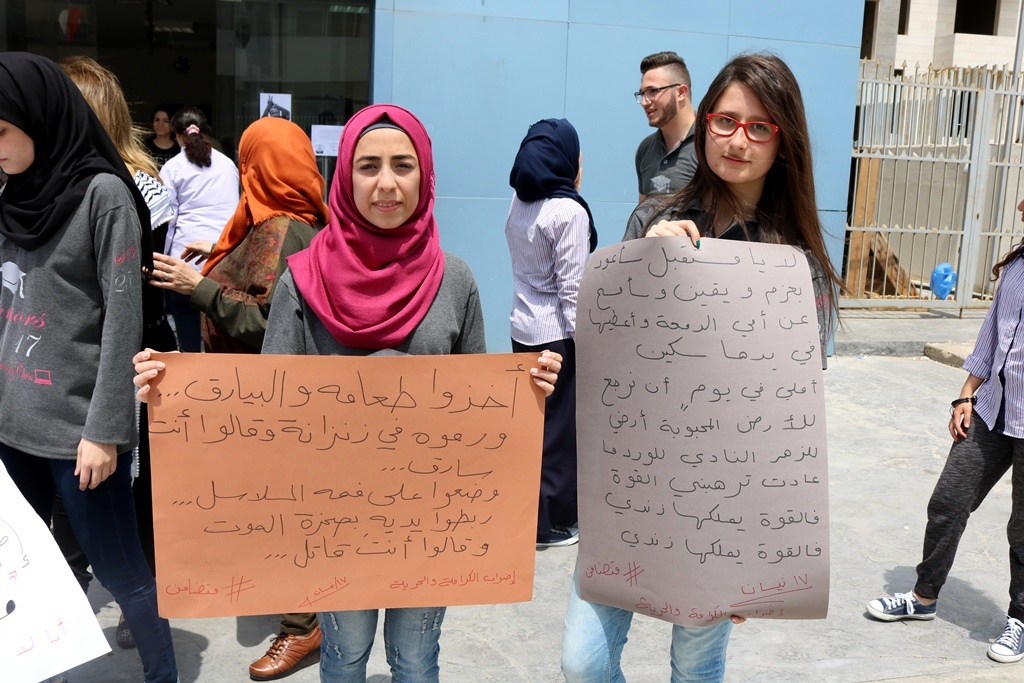 أخذوا طعامه والبيارق...
ورموه في زنزانة وقالوا أنت
سارق...
وضعوا على فمه السلاسل...
ربطوا يديه بصخرة الموت
وقالوا أنت قاتل...
إضراب الكرامة والحرية
١٧ نيسان
#متضامن
لا يا مستقبل سأعود
بعزم ويقين وسأمسح
عن أمي الدمعة وأعطيها
في يدها سكين
أملي في يوم أن نرجع
للأرض المحبوبة أرضي
للزهر النادي للورد فما
عادت ترهبني القوة
فالقوة يملكها زندي
فالقوة يملكها زندي
#متضامن
١٧ نيسان
إضراب الكرامة والحرية
17
أنا لا